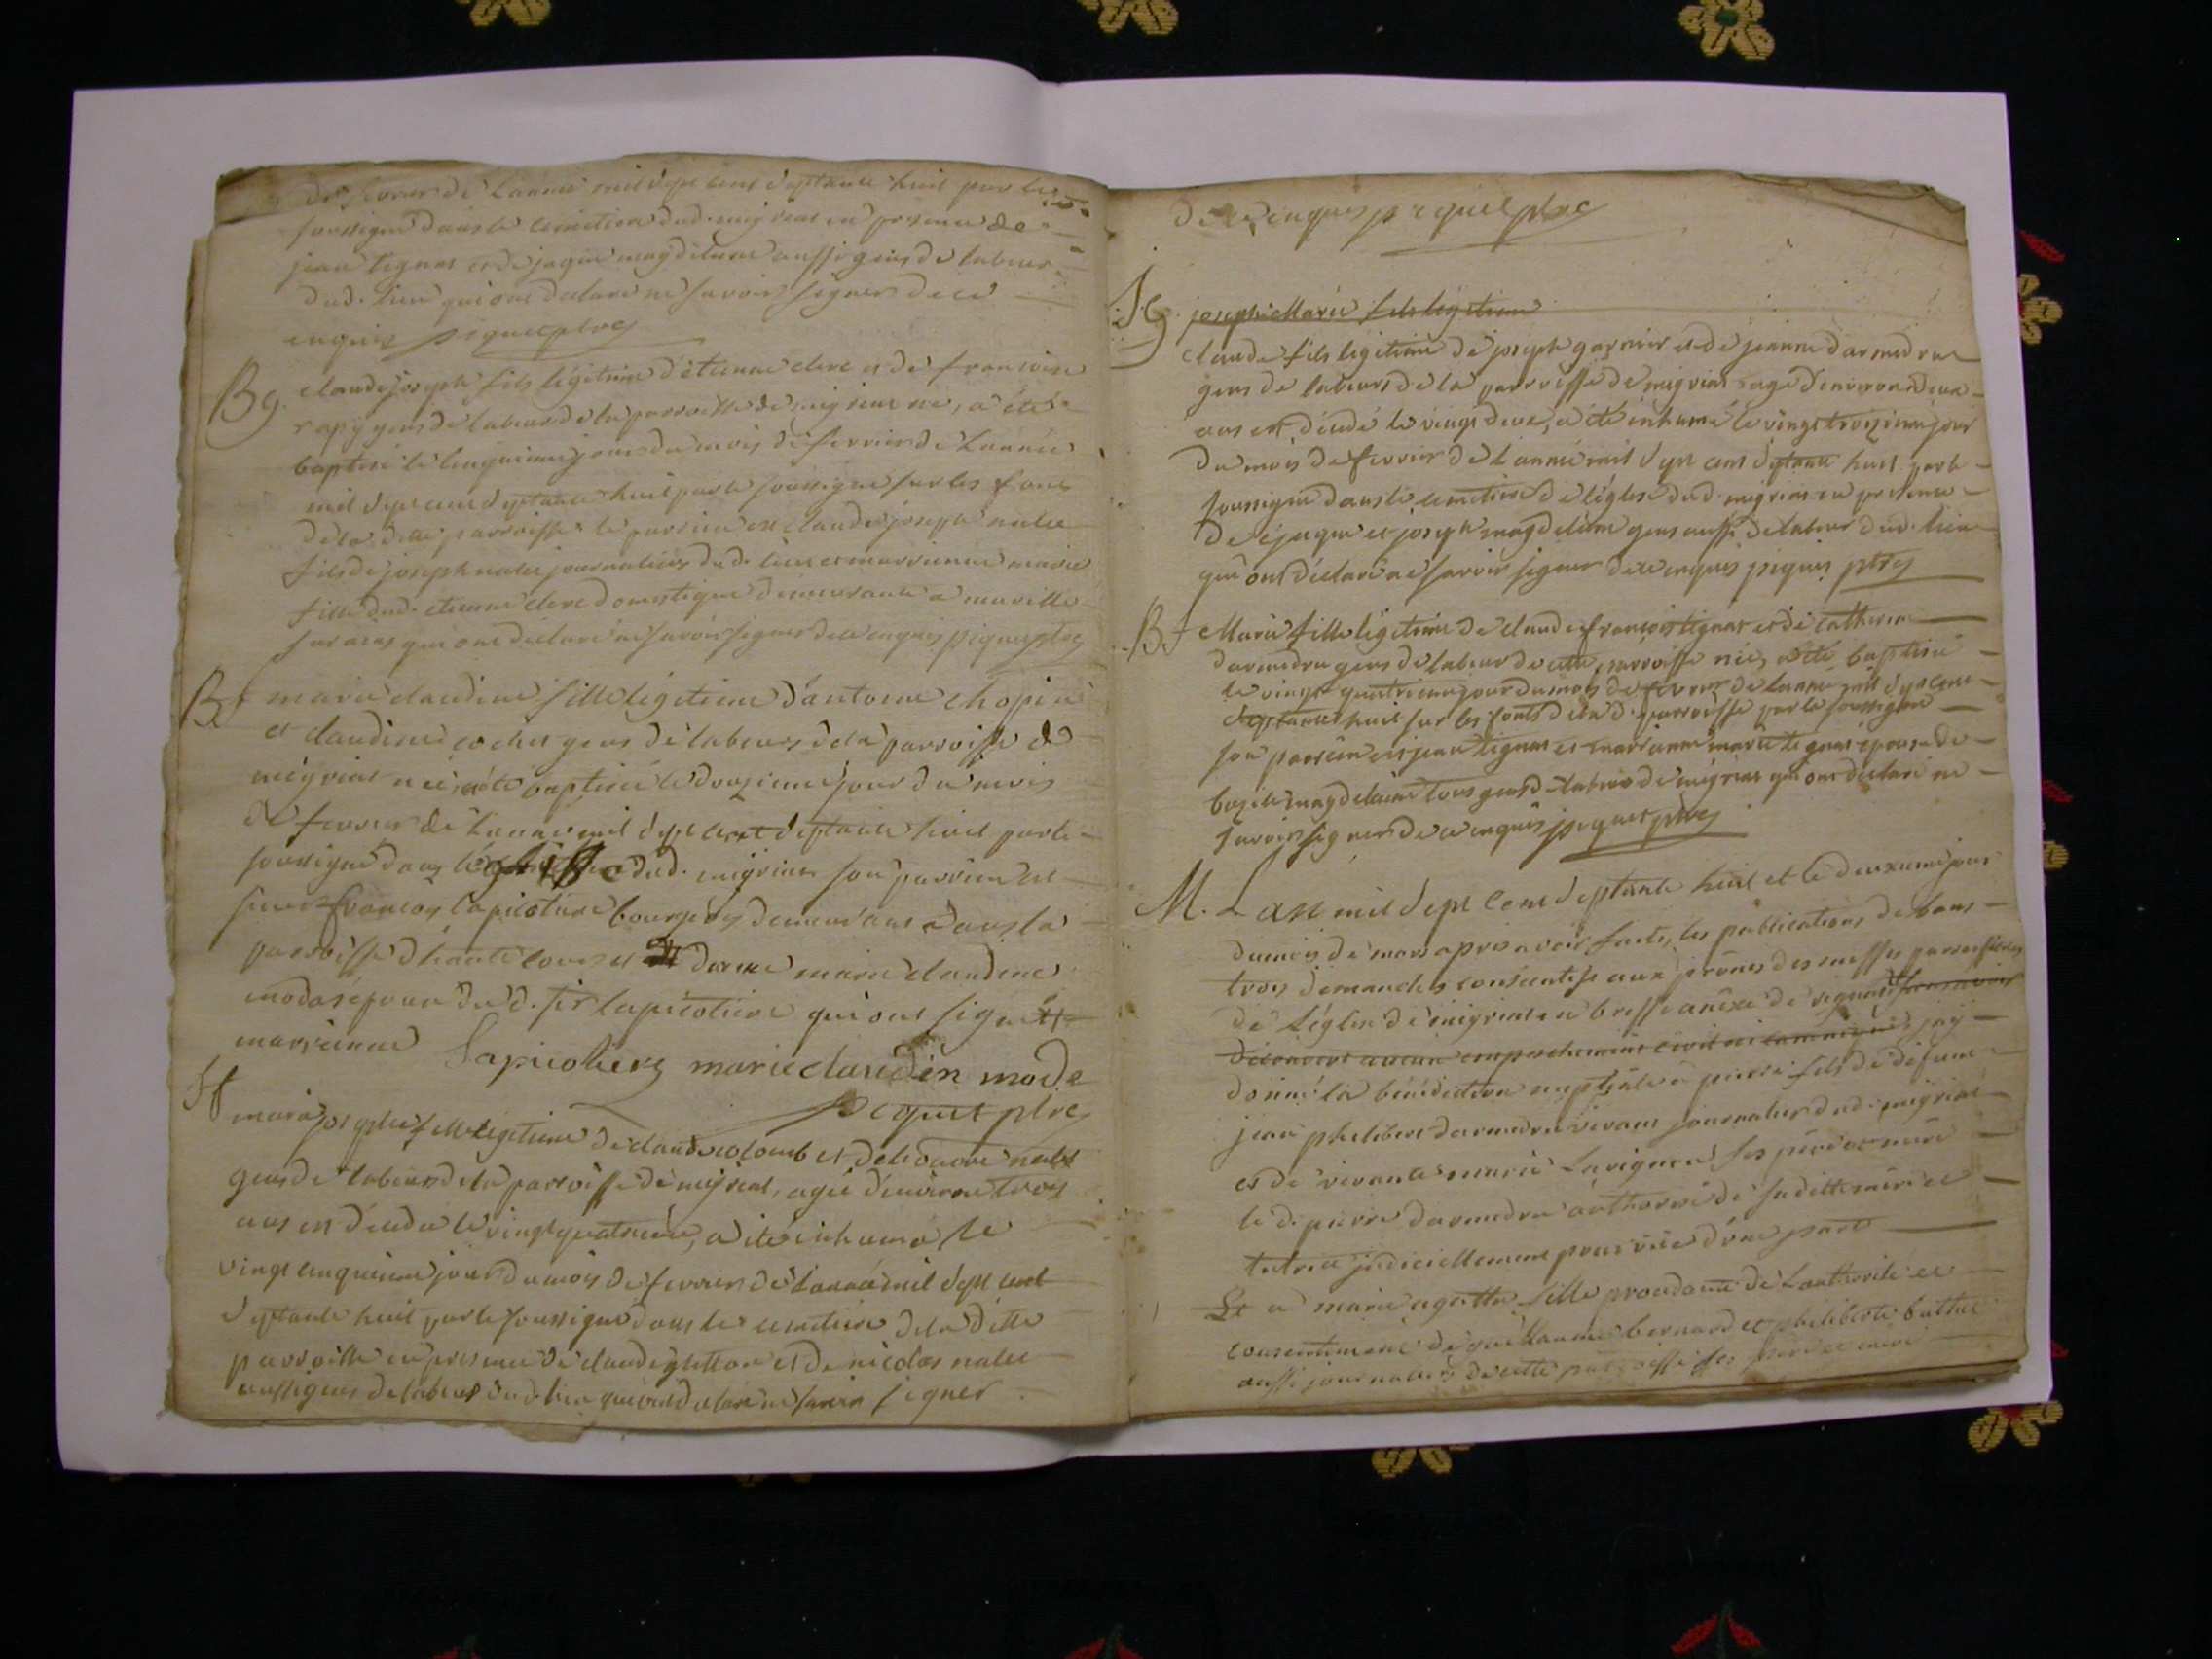 de fevrier de l'année mil sept cent septante huit par le
soussigné dans le cimetiere dud. migriat en presence de
jean tignat et de jaque magdelaine aussi gens de labeur
dud. lieu qui ont declaré ne savoir signer de ce
enquis piquet ptre
Bg. claude joseph fils légitime d'étienne clerc et de francoise
rapy gens de labeur de la parroisse de migriat né, a été
baptisé le cinquieme jour du mois de fevrier de l'année
mil sept cent septante huit par le soussigné sur les fonts
de la ditte parroisse le parrien est claude joseph nalet
fils de joseph nalet journalier dud. lieu et marrienne marie
fille dud. etienne clerc domestique demeurante a
qui ont déclaré ne savoir signer de ce enquis piquet ptre
Bf marie claudine fille légitime d'antoine chopin
et claudine cochet gens de labeurs de la parroisse de
migriat née, a été baptisée le douzieme jour du mois
de fevrier de l'année mil sept cent septante huit par le
soussigné dans l'église dud. migriat son parrien est
sieur francois lapicotiere bourgeois demeurant dans la
parroisse d'haute cour et dame marie claudine
modas épouse dud. sr lapicotiere qui ont signé
marrienne Lapicotiere marie claudin mode
piquet ptre
Sf marie josephte fille légitime de claude colomb et de nalet
gens de labeur de la parroisse de migriat, agée d'environ trois
ans est décédée le vingt quatrieme, a été inhumé le
vingt cinquieme jour du mois de fevrier de l'année mil sept cent
septante huit par le soussigné dans le cimetiere de la ditte
parroisse en presence de claude gletton et de nicolas nalet
aussi gens de labeur dud. lieu qui ont déclaré ne savoir signer
de ce enquis piquet ptre
Sg. joseph Marie fils légitime
claude fils légitime de joseph garnier et de jeanne darmedru
gens de labeurs de la parroisse de migriat agé d'environ deux
ans est décédé le vingt deux, a été inhumé le vingt troizieme jour
du mois de fevrier de l'année mil sept cent septante huit par le
soussigné dans le cimetiere de l'église dud. migriat en presence
de jaque et joseph magdelaine gens aussi de labeur dud. lieu
qui ont déclaré ne savoir signer de ce enquis piquet ptre
Bf Marie fille légitime de claude francois tignat et de catherine
darmedru gens de labeur de cette parroisse née, a été baptisé
le vingt quatrieme jour du mois de fevrier de l'année mil sept cent
septante huit sur les fonts de lad. parroisse par le soussigné
son parrein est jean tignat et marrienne marie tignat épouse de
bazile magdelaine tous gens de labeur de migriat qui ont déclaré ne
savoir signer de ce enquis piquet ptre
M. L an mil sept cent septante huit et le deuxieme jour
du mois de mars apres avoir faites les publications de bans
trois dimanches consecutifs aux prônes des messes parroissiales
de l'église de migriat en bresse anexe de sans avoir
découvert aucun empechement civil ni canonique j'ay
donné la bénédiction nuptiale a pierre fils de défunt
jean philibert darmedru vivant journalier dud. migriat
et de vivante marie lavigne ses pere et mere
le d. pierre darmedru authorisé de saditte mere et
tutrice judiciellement pourvüe d'une part
Et a marie agathe fille procedante de l'authorité et
consentement de guillaume bernard et philiberte buttet
aussi journaliers de cette parroisse ses pere et mere